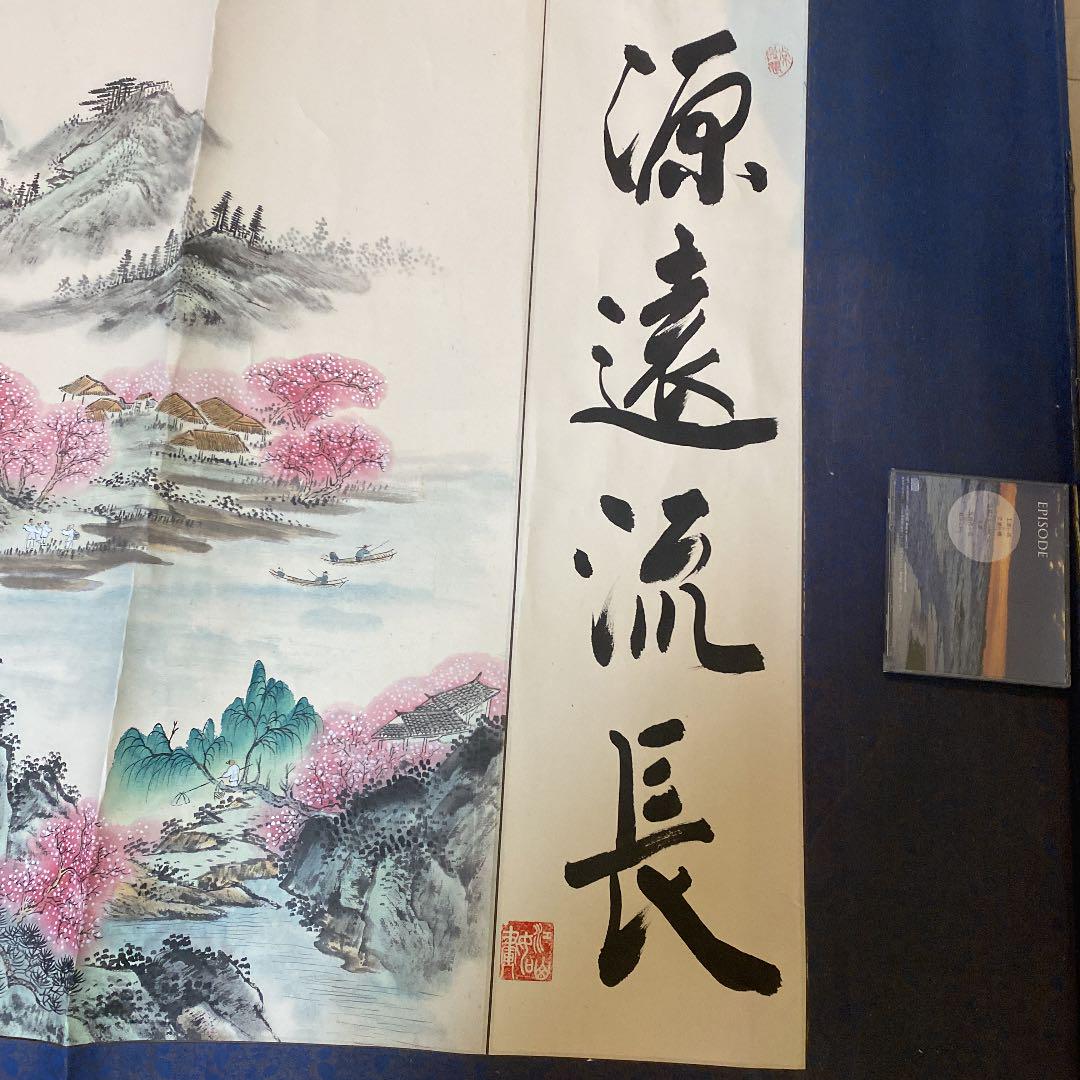 源遠流長
EPISODE